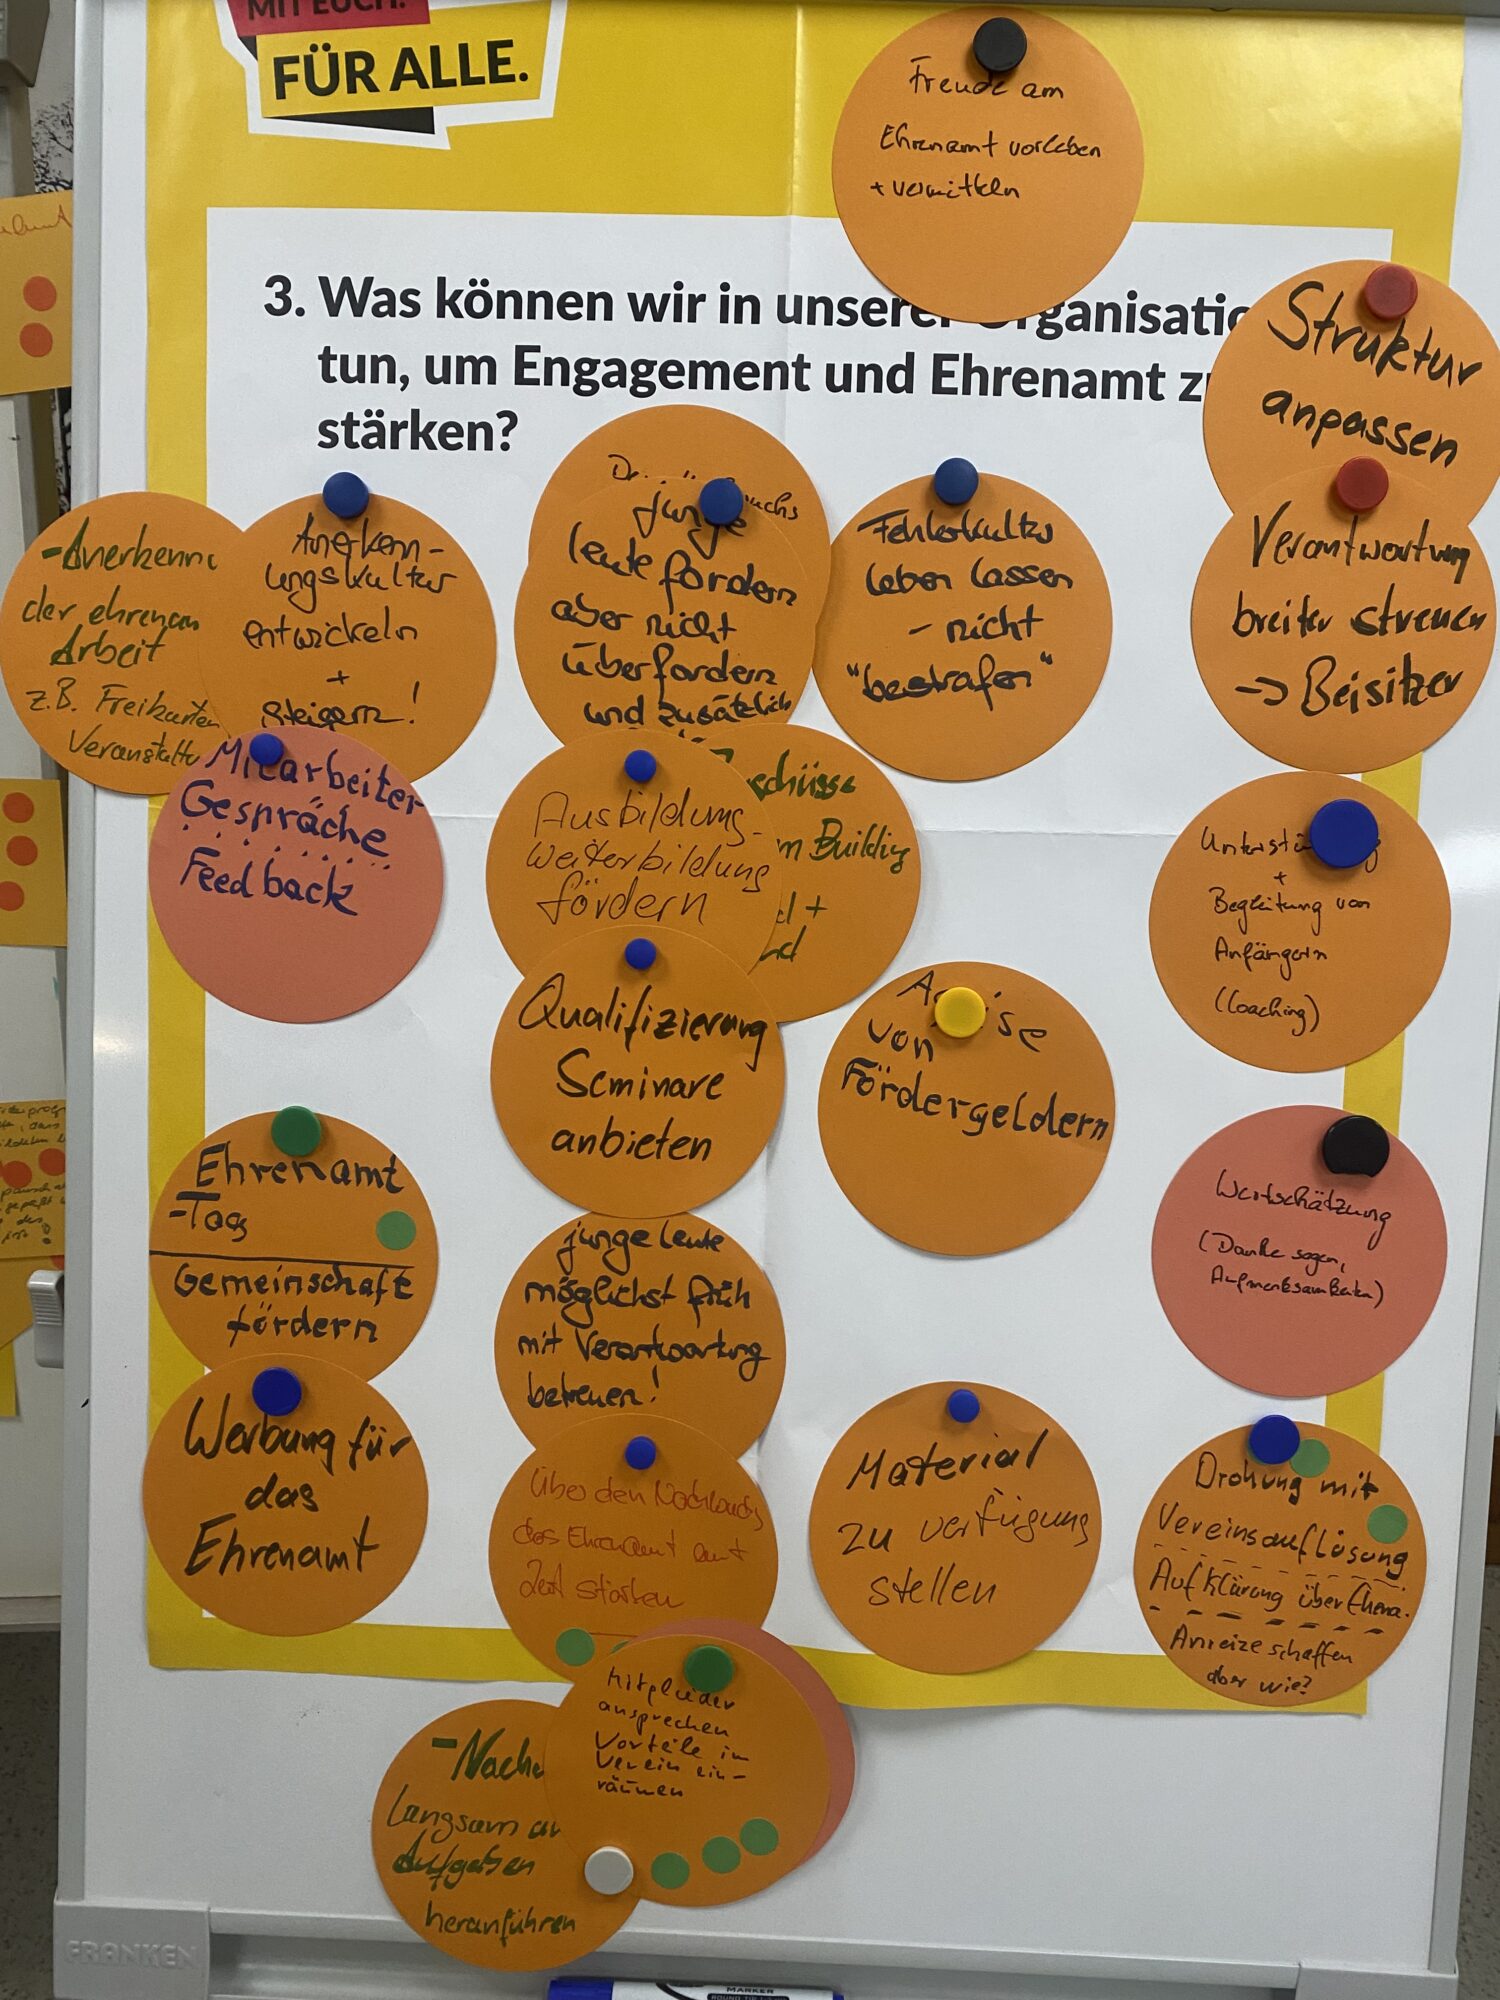 MIT EUCH.
FÜR ALLE.
Freude am
Ehrenamt vorleben
+ vermitteln
3. Was können wir in unserer Organisatio
tun, um Engagement und Ehrenamt z
stärken?
Struktur
anpassen
Verantwortung
breiter streuen
-> Beisitzer
- Anerkennu
der ehrenam
Arbeit
z.B. Freikarten
Veranstaltu
Anerkenn-
ungskultur
entwickeln
+
steigern!
junge
leute fordern
aber nicht
überfordern
und zusätzlich
Fehlerkultur
leben lassen
- nicht
"bestrafen"
Mitarbeiter
Gespräche
Feedback
Ausbildung-
Weiterbildung
fördern
schüsse
m Building
d +
nd
Unterstü
+
Begleitung von
Anfängern
(Coaching)
Qualifizierung
Seminare
anbieten
von
Fördergeldern
Ehrenamt
-Tag
Gemeinschaft
fördern
junge leute
möglichst früh
mit Verantwortung
betreuen!
Wertschätzung
(Danke sagen,
Aufmerksamkeiten)
Werbung für
das
Ehrenamt
Über den Nachwuchs
das Ehrenamt mit
Zeit stärken
Material
zu verfügung
stellen
Drohung mit
Vereinsauflösung
Aufklärung über Ehena.
Anreize schaffen
aber wie?
Mitglieder
ansprechen
Vorteile im
Verein ein-
räumen
- Nachw
langsam an
Aufgaben
heranführen
FRANKEN
MARKER